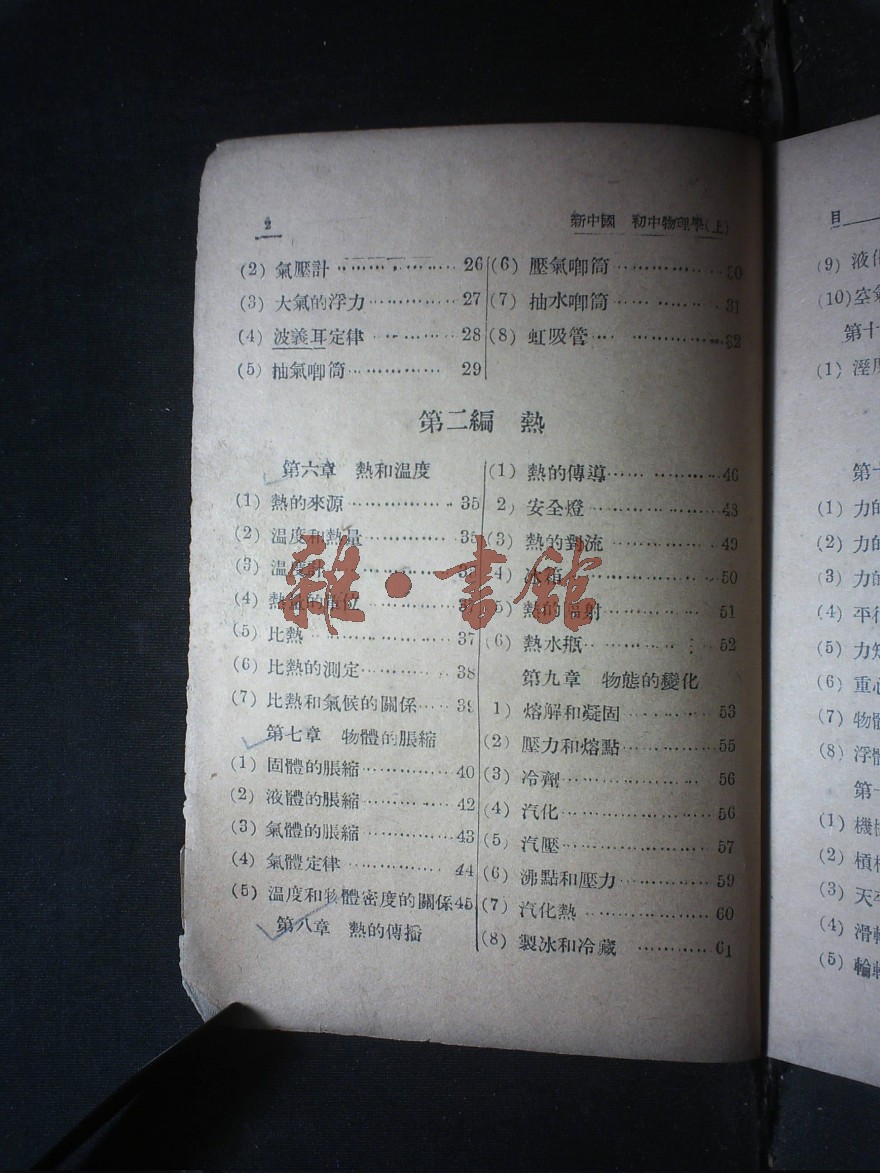 2
新中國 初中物理學(上)
(2) 氣壓計 26
(3) 大氣的浮力 27
(4) 波義耳定律 28
(5) 抽氣唧筒 29
(6) 壓氣唧筒 30
(7) 抽水唧筒 31
(8) 虹吸管 32
第二編 熱
第六章 熱和温度
(1) 熱的來源 35
(2) 温度和熱量 35
(3) 温度計
(4) 熱量的單位 37
(5) 比熱 37
(6) 比熱的測定 38
(7) 比熱和氣候的關係 39
第七章 物體的脹縮
(1) 固體的脹縮 40
(2) 液體的脹縮 42
(3) 氣體的脹縮 43
(4) 氣體定律 44
(5) 温度和物體密度的關係 45
第八章 熱的傳播
(1) 熱的傳導 46
2) 安全燈 48
(3) 熱的對流 49
(4) 冰箱 50
(5) 熱的輻射 51
(6) 熱水瓶 52
第九章 物態的變化
1) 熔解和凝固 53
(2) 壓力和熔點 55
(3) 冷劑 56
(4) 汽化 56
(5) 汽壓 57
(6) 沸點和壓力 59
(7) 汽化熱 60
(8) 製冰和冷藏 61
雜·書館
目
(9) 液化
(10) 空氣
第十
(1) 溼度
第十
(1) 力的
(2) 力的
(3) 力的
(4) 平行
(5) 力矩
(6) 重心
(7) 物體
(8) 浮體
第十
(1) 機械
(2) 槓桿
(3) 天平
(4) 滑輪
(5) 輪軸